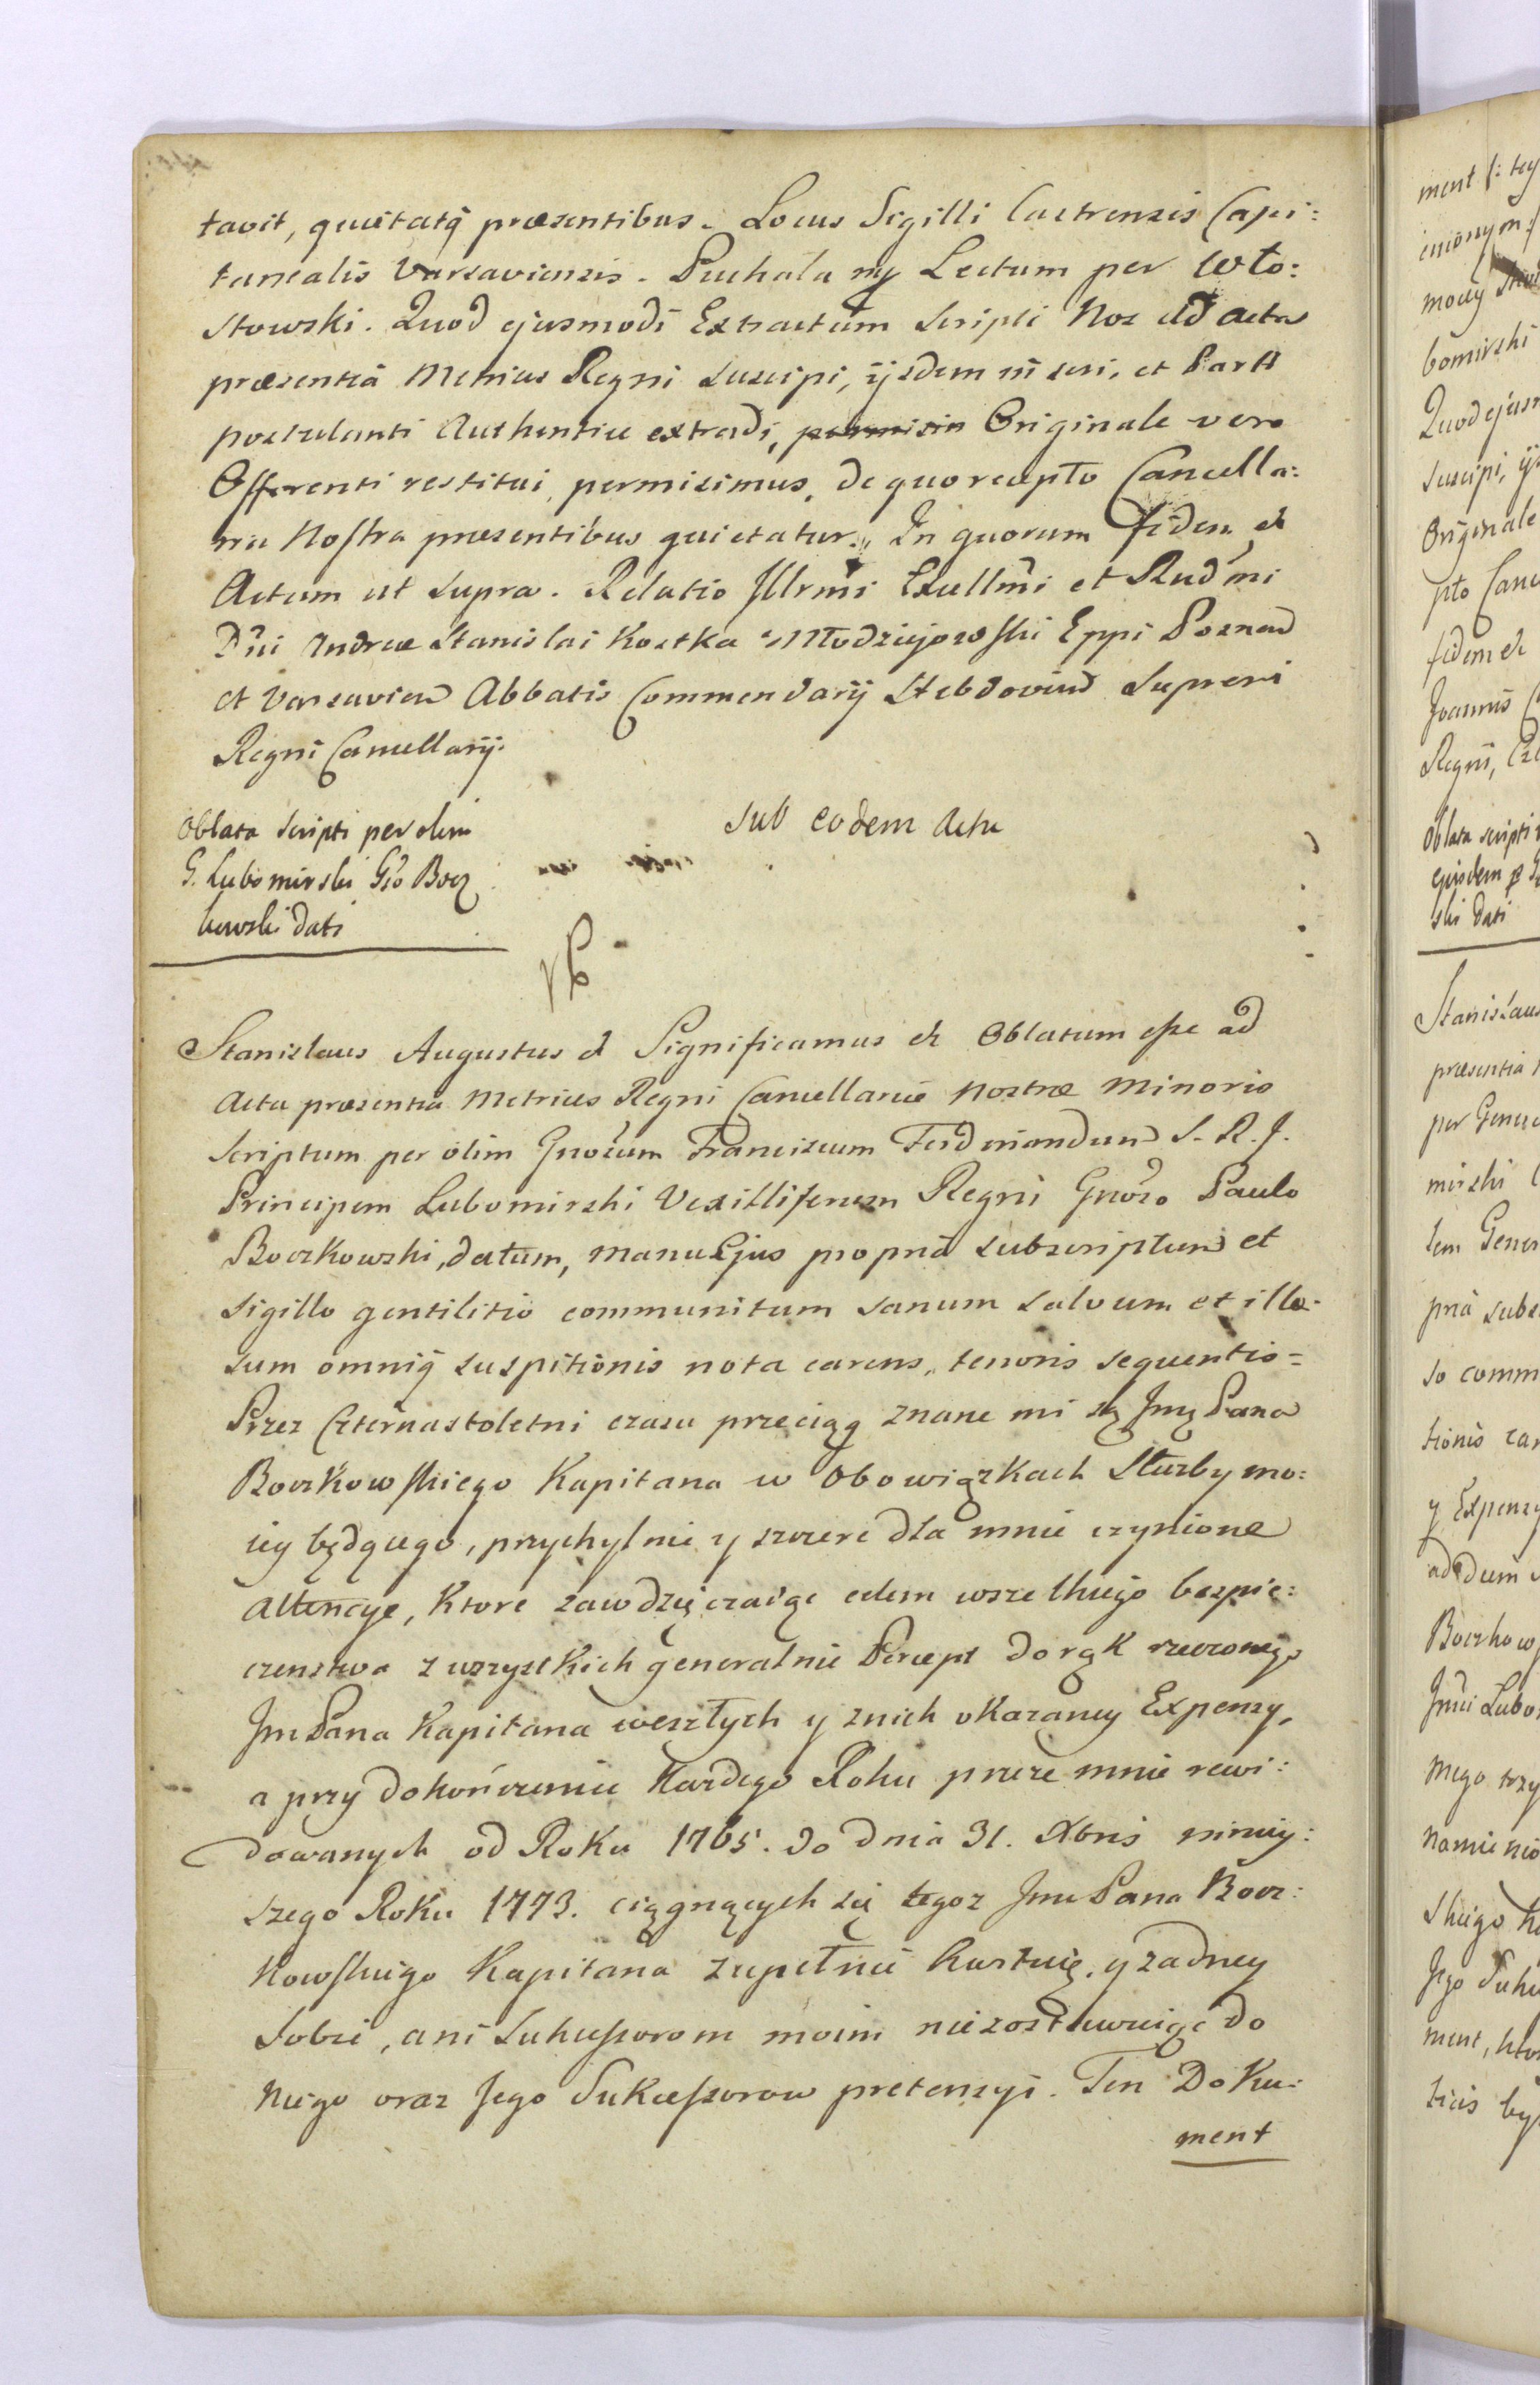 tavit, quietatq̃ præsentibus. Locus Sigilli Castrensis Capi:
tanealis Varsaviensis. Puchała mp Lectum per Wło:
stowski. Quod ejusmodi Extractum Scripti Nos ad Acta
præsentia Metrices Regni suscipi, ijsdem inseri, et Parti
postulanti Authentice extradi, permisim Originale vero
Offerenti restitui, permisimus, de quo recepto Cancella:
ria Nostra præsentibus quietatur. In quorum fidem et
Actum ut supra. Relatio Illrmi Exullmi et Rudmi
Dni Andreæ Stanislai Kostka Młodziejowski Eppi Poznan
et Varsavien Abbatis Commendarij Hebdovien Supremi
Regni Cancellarij.
Oblata scripti per olim
G. Lubomirski Gso Bocz
kowski dati
Sub eodem Actu
Stanislaus Augustus et Significamus et Oblatum esse ad
Acta præsentia Metrices Regni Cancellariæ Nostræ Minoris
Scriptum per olim Gnosum Franciscum Ferdinandum S. R. J.
Principem Lubomirski Vexilliferum Regni Gnoso Paulo
Boczkowski, datum, manu Ejus propria subscriptum et
Sigillo gentilitio communitum sanum salvum et illæ-
sum omniq̃ suspitionis nota carens, tenoris sequentis =
Przez Czternastoletni czasu przeciąg znane mi są Jmę Pana
Boczkowskiego Kapitana w Obowiązkach Służby mo:
iey będącego, przychylnie y szczere dla mnie czynione
Attencye, Które zawdzięczaiąc celem wszelkiego bezpie:
czenstwa z wszystkich generalnie Percept do rąk rzeczonego
Jm Pana Kapitana weszłych y z nich okazaney Expensy,
a przy dokończeniu Każdego Roku przeze mnie rewi:
dowanych od Roku 1765. do dnia 31. Xbris niniey:
szego Roku 1773. ciągnących się tegoz Jmc Pana Bocz:
kowskiego Kapitana zupełnie kwituię, y zadney
Sobie, ani Sukcessorom moim niezostawuiąc do
Niego oraz Jego Sukcessorow pretensyi. Ten Doku:
ment